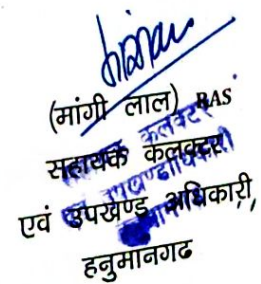 (मांगी लाल) RAS
सहायक कलक्टर
एवं उपखण्ड अधिकारी,
हनुमानगढ